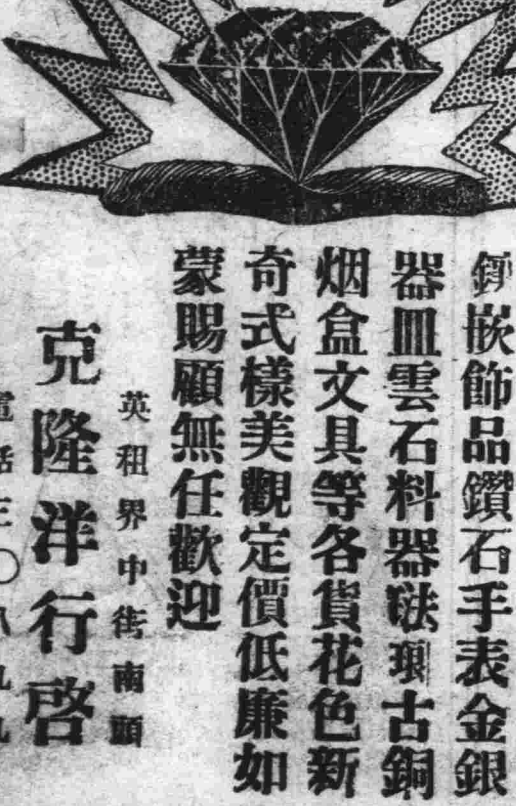 鑲嵌飾品鑽石手表金銀
器皿雲石料器琺瑯古銅
烟盒文具等各貨花色新
奇式樣美觀定價低廉如
蒙賜顧無任歡迎
英租界中街南頭
克隆洋行啓
電話三〇八九九